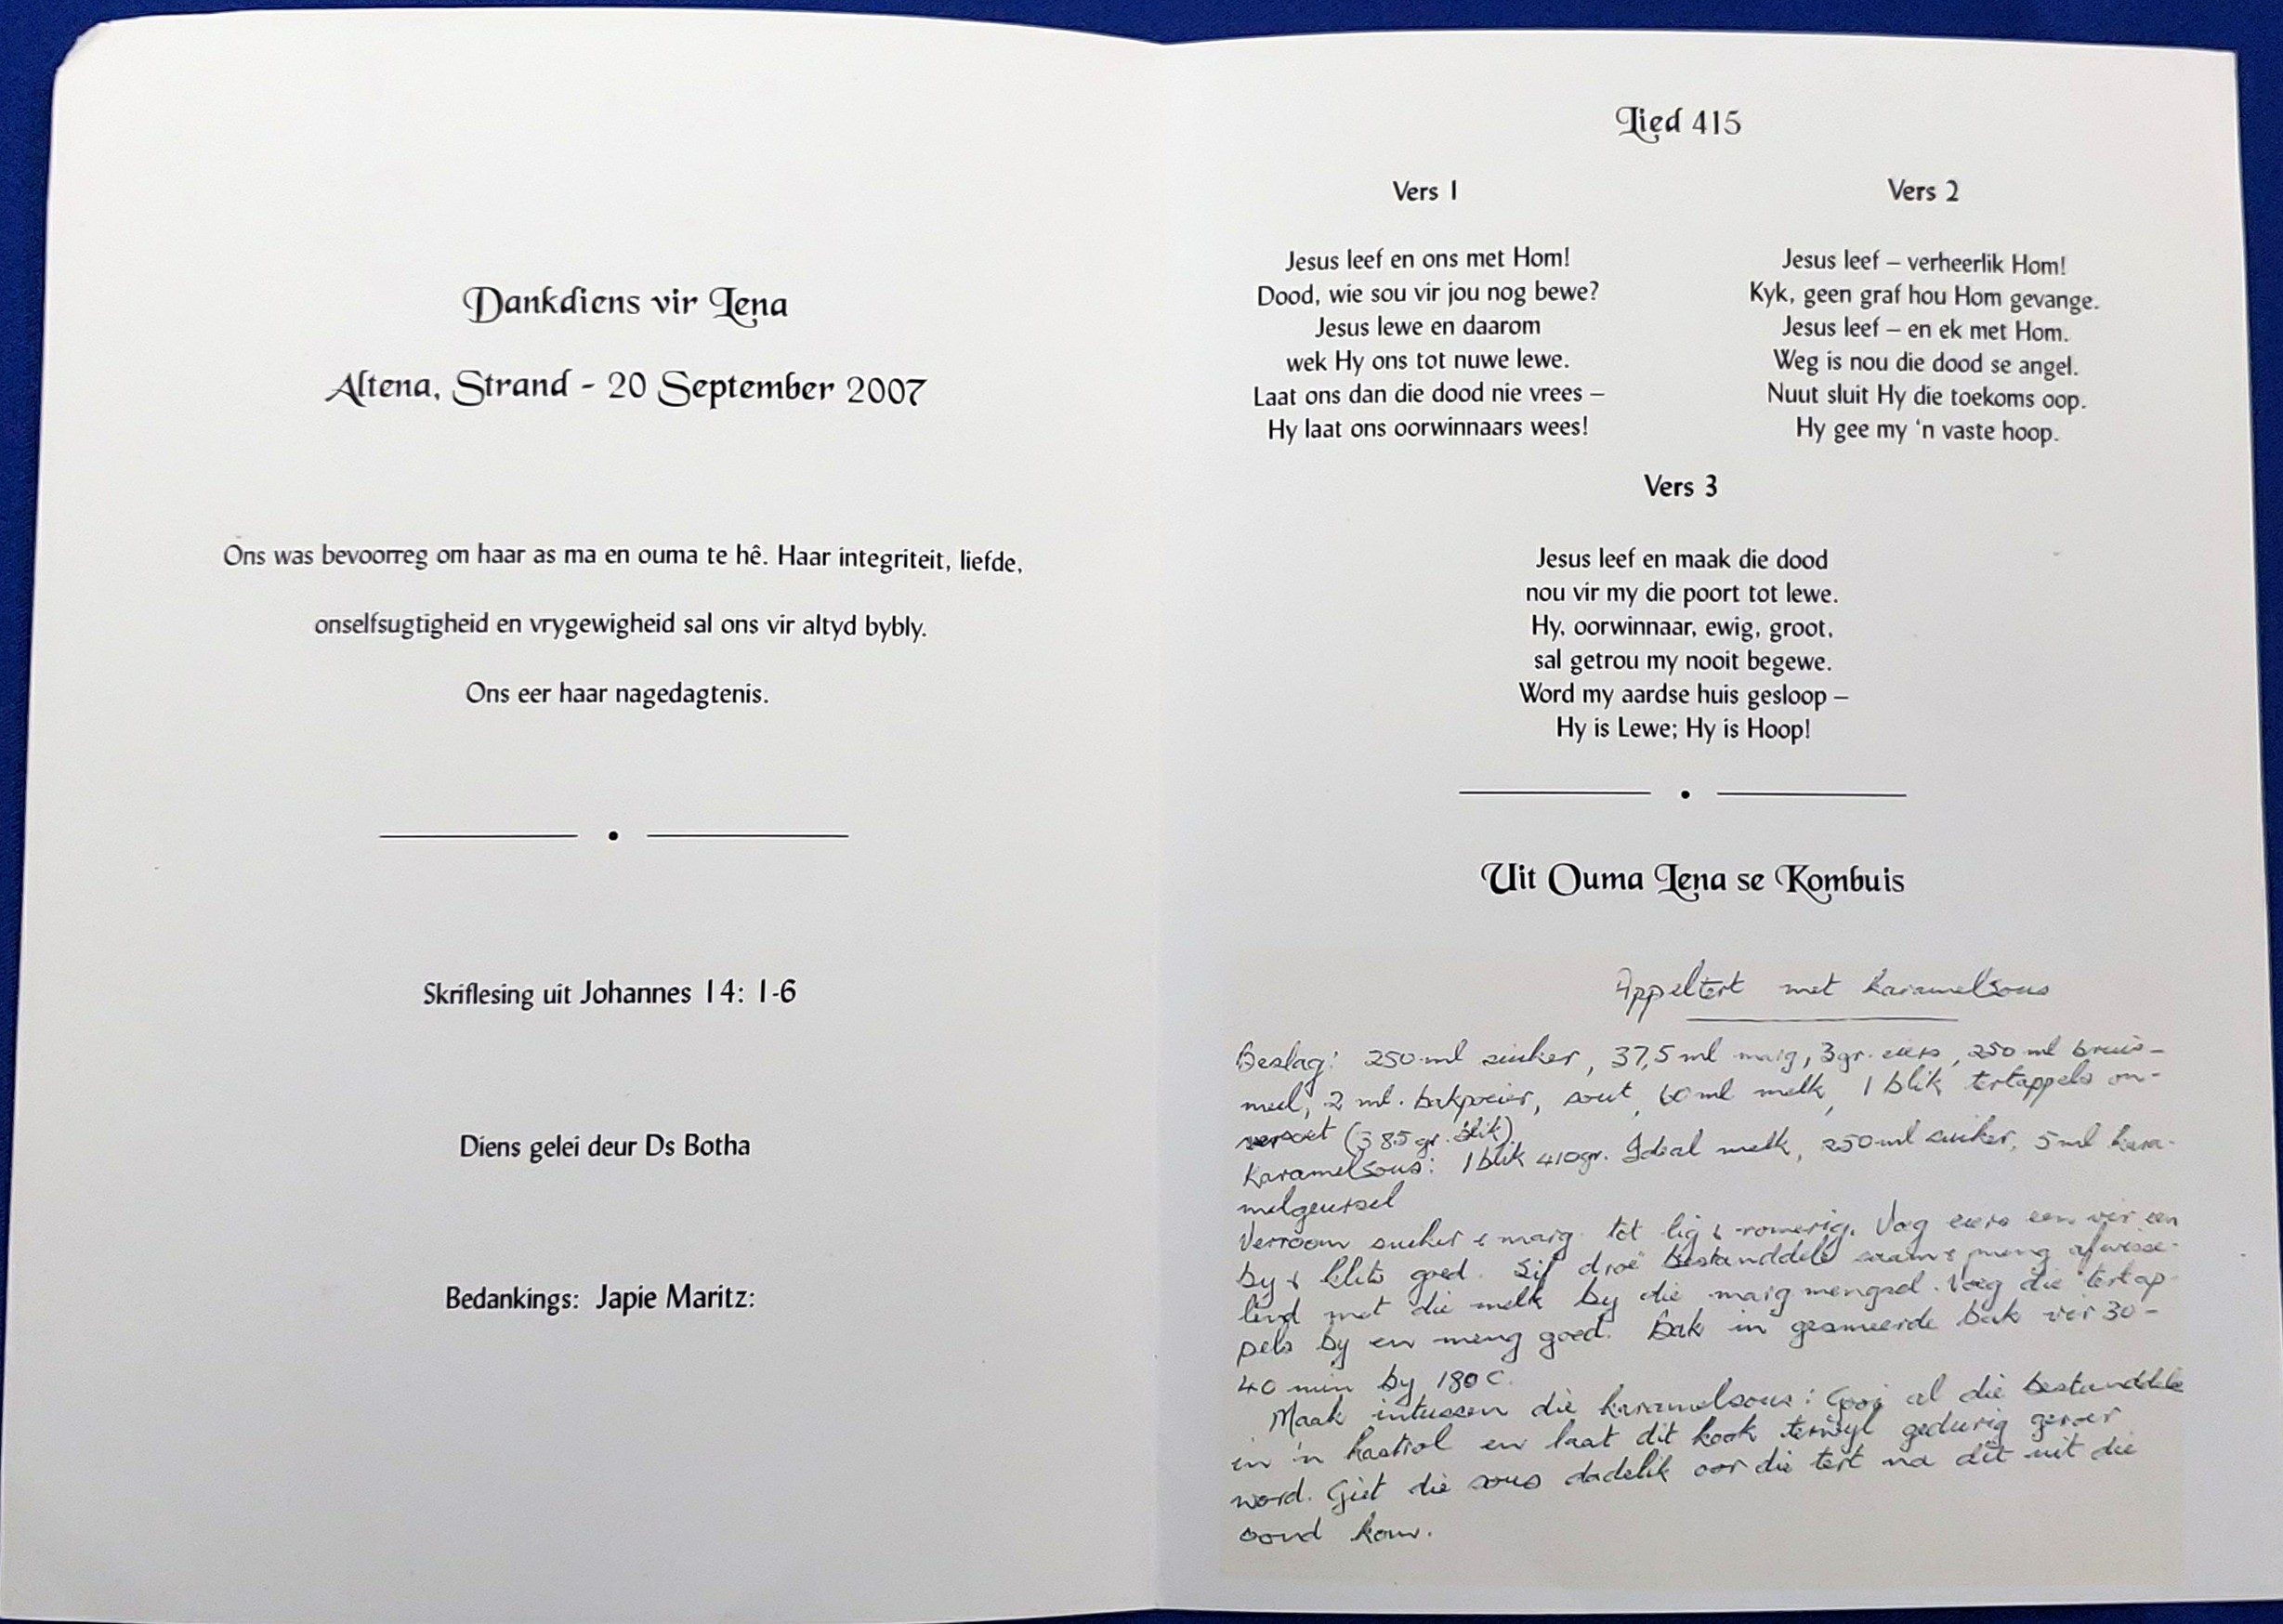 Dankdiens vir Lena
Altena, Strand - 20 September 2007
Ons was bevoorreg om haar as ma en ouma te hê. Haar integriteit, liefde,
onselfsugtigheid en vrygewigheid sal ons vir altyd bybly.
Ons eer haar nagedagtenis.
Skriflesing uit Johannes 14: 1-6
Diens gelei deur Ds Botha
Bedankings: Japie Maritz:
Lied 415
Vers 1
Jesus leef en ons met Hom!
Dood, wie sou vir jou nog bewe?
Jesus lewe en daarom
wek Hy ons tot nuwe lewe.
Laat ons dan die dood nie vrees –
Hy laat ons oorwinnaars wees!
Vers 2
Jesus leef – verheerlik Hom!
Kyk, geen graf hou Hom gevange.
Jesus leef – en ek met Hom.
Weg is nou die dood se angel.
Nuut sluit Hy die toekoms oop.
Hy gee my 'n vaste hoop.
Vers 3
Jesus leef en maak die dood
nou vir my die poort tot lewe.
Hy, oorwinnaar, ewig, groot,
sal getrou my nooit begewe.
Word my aardse huis gesloop –
Hy is Lewe; Hy is Hoop!
Uit Ouma Lena se Kombuis
Appeltert met karamelsous
Beslag: 250 ml suiker, 37,5 ml marg, 3 gr. eiers, 250 ml bruis-
meel, 2 ml. bakpoeier, sout, 60 ml melk, 1 blik tertappels on-
versoet (385 gr. blik)
Karamelsous: 1 blik 410gr. Ideal melk, 250 ml suiker, 5 ml kara-
melgeursel
Verroom suiker & marg tot lig & romerig. Voeg eiers een vir een
by & klits goed. Sif droë bestanddele saam & meng afwisse-
lend met die melk by die marg mengsel. Voeg die tertap-
pels by en meng goed. Bak in gesmeerde bak vir 30-
40 min by 180 C.
Maak intussen die karamelsous: Gooi al die bestanddele
in 'n kastrol en laat dit kook terwyl gedurig geroer
word. Giet die sous dadelik oor die tert na dit uit die
oond kom.